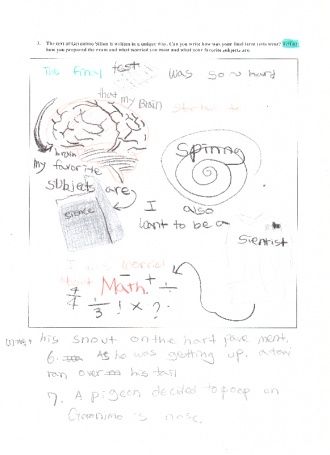 3. The text of Geronimo Stilton is written in a unique way. Can you write how was your final term tests week?
how you prepared the exam and what worried you most and what your favorite subjects are.
The final test was so hard
that my Brain started to
brain
Spinng
my favorite
subjects are
science
I also
want to be a
Sientist
Math + ÷
1/3 ! × ?
his snout on the hard pave ment.
6. As he was getting up, a taxi
ran over his tail
7. A pigeon decided to poop on
Geronimo's nose.